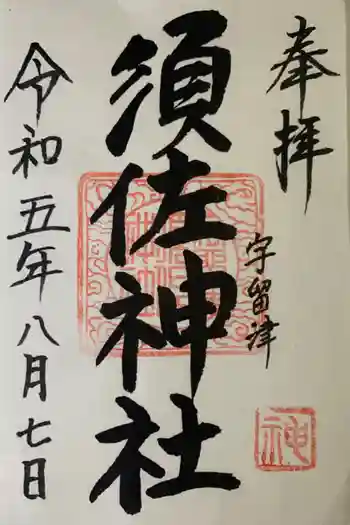 奉拝
宇留津
須佐神社
令和五年八月七日